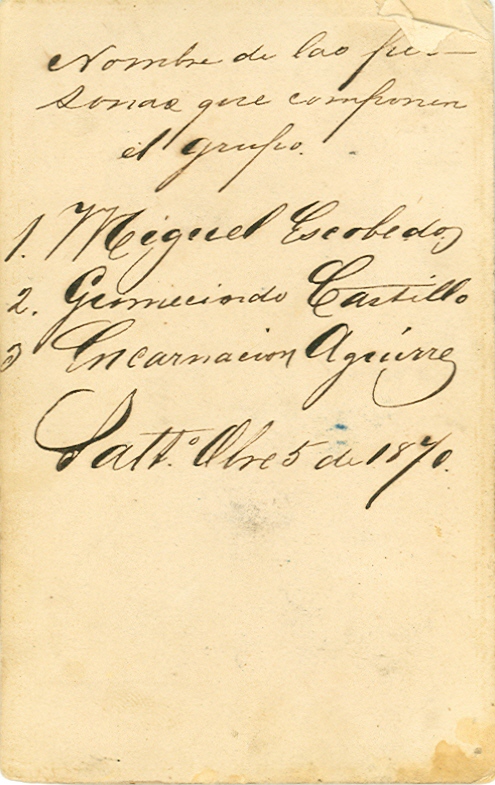 Nombre de las per-
sonas que componen
el grupo.
1. Miguel Escobedo,
2. Gumecindo Castillo
3 Encarnacion Aguirre
Saltº. Obre 5 de 1870.